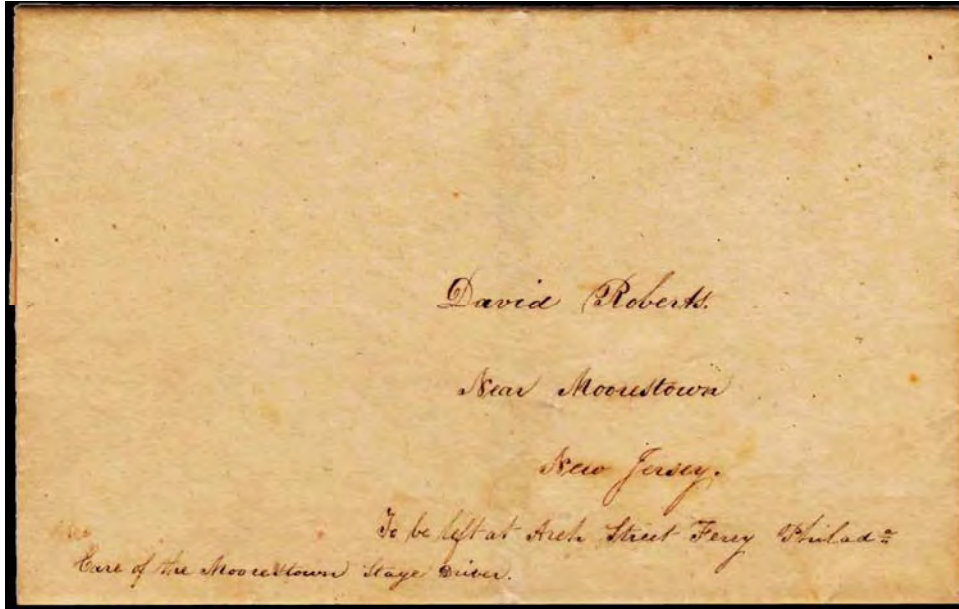 David Roberts.
Near Moorestown
New Jersey.
To be left at Arch Street Ferry Philad=
Care of the Moorestown Stage Driver.